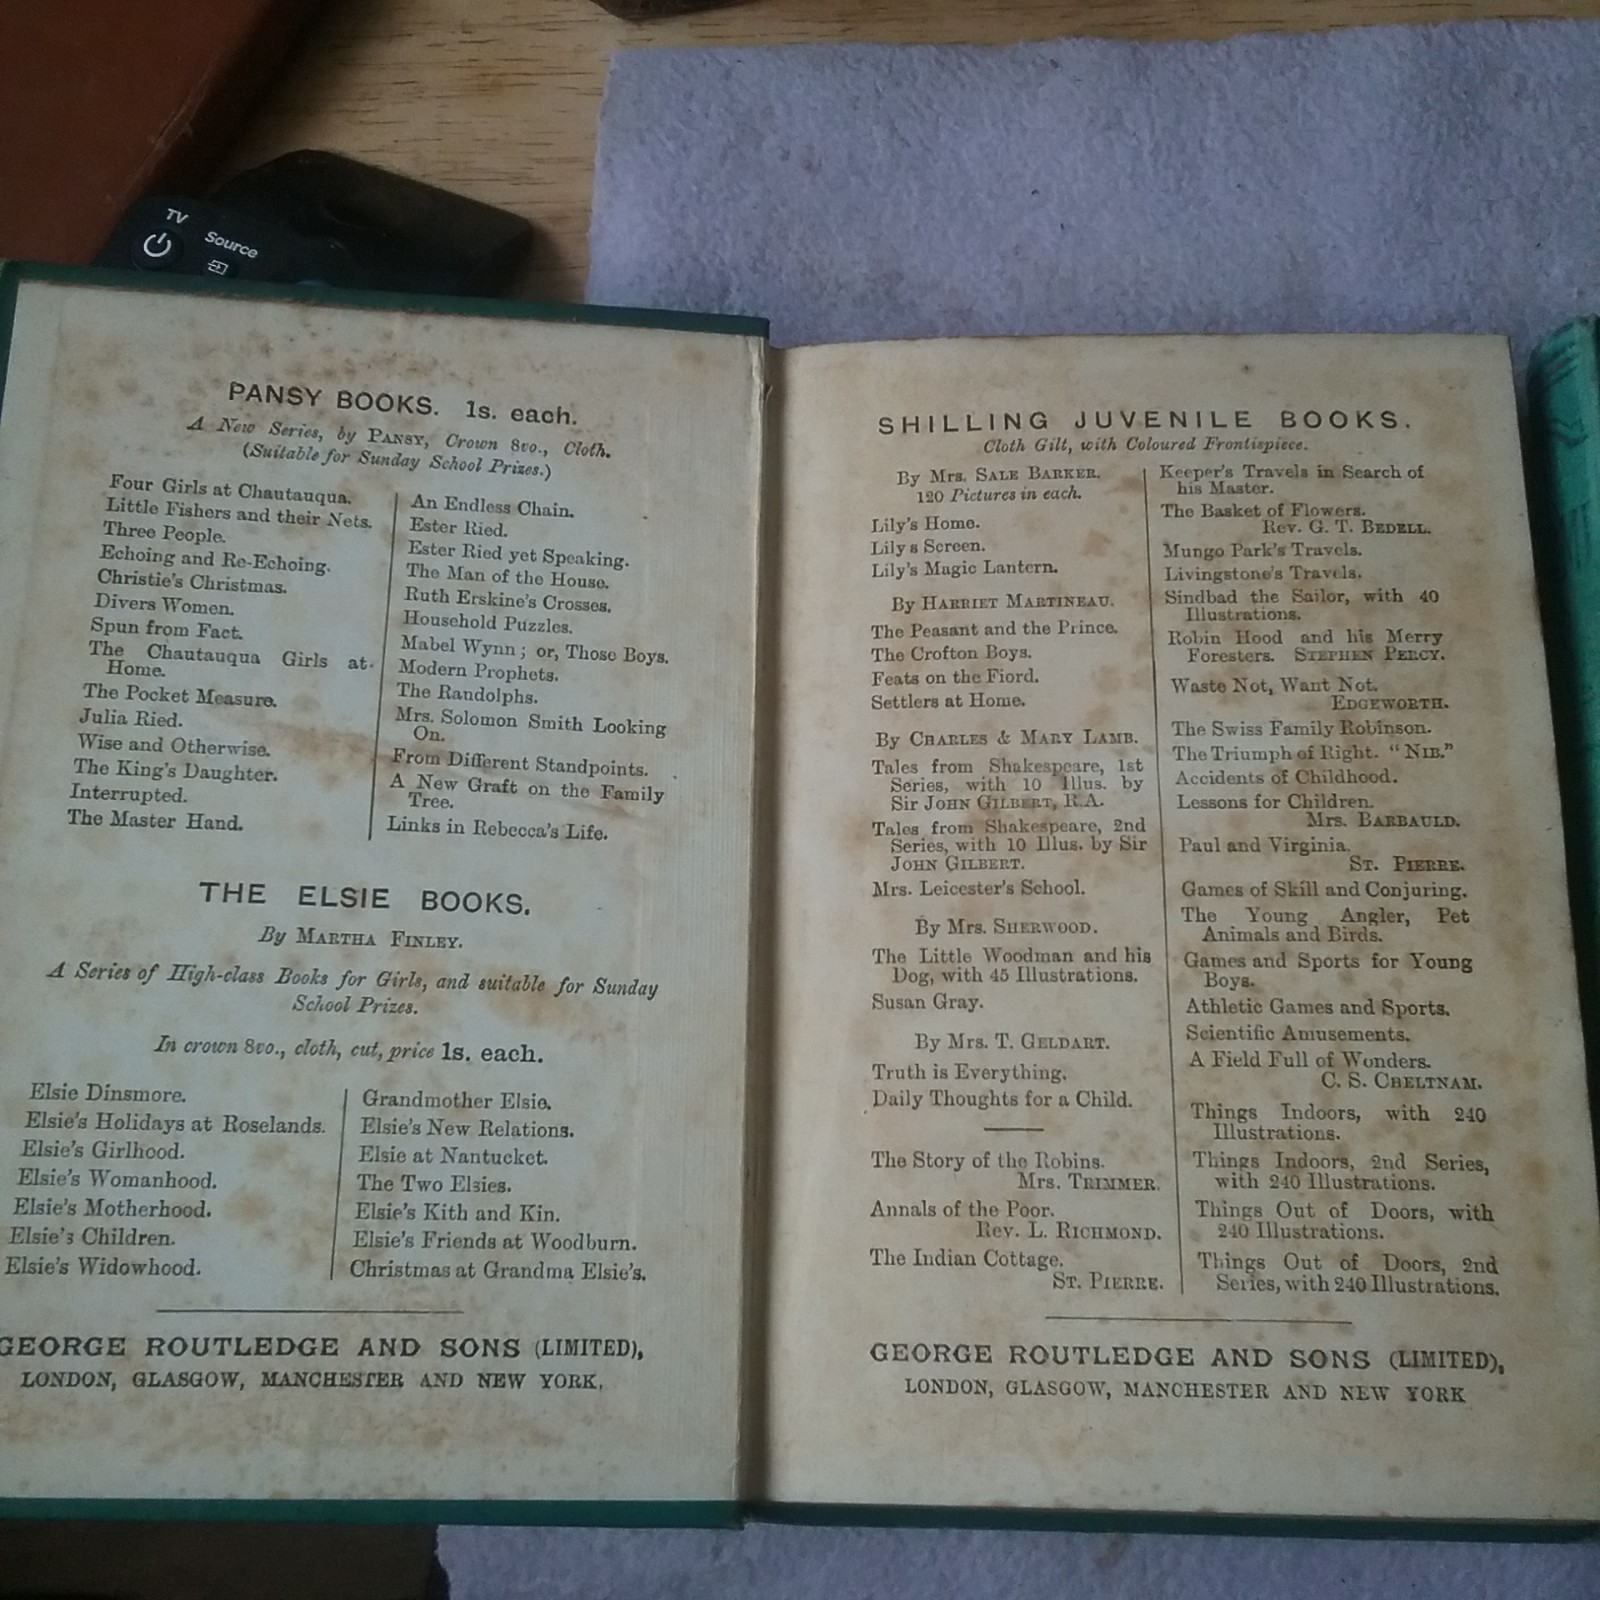 TV
Source
PANSY BOOKS. 1s. each.
A New Series, by PANSY, Crown 8vo., Cloth.
(Suitable for Sunday School Prizes.)
Four Girls at Chautauqua.
Little Fishers and their Nets.
Three People.
Echoing and Re-Echoing.
Christie's Christmas.
Divers Women.
Spun from Fact.
The Chautauqua Girls at
Home.
The Pocket Measure.
Julia Ried.
Wise and Otherwise.
The King's Daughter.
Interrupted.
The Master Hand.
An Endless Chain.
Ester Ried.
Ester Ried yet Speaking.
The Man of the House.
Ruth Erskine's Crosses.
Household Puzzles.
Mabel Wynn; or, Those Boys.
Modern Prophets.
The Randolphs.
Mrs. Solomon Smith Looking
On.
From Different Standpoints.
A New Graft on the Family
Tree.
Links in Rebecca's Life.
THE ELSIE BOOKS.
By MARTHA FINLEY.
A Series of High-class Books for Girls, and suitable for Sunday
School Prizes.
In crown 8vo., cloth, cut, price 1s. each.
Elsie Dinsmore.
Elsie's Holidays at Roselands.
Elsie's Girlhood.
Elsie's Womanhood.
Elsie's Motherhood.
Elsie's Children.
Elsie's Widowhood.
Grandmother Elsie.
Elsie's New Relations.
Elsie at Nantucket.
The Two Elsies.
Elsie's Kith and Kin.
Elsie's Friends at Woodburn.
Christmas at Grandma Elsie's.
GEORGE ROUTLEDGE AND SONS (LIMITED),
LONDON, GLASGOW, MANCHESTER AND NEW YORK.
SHILLING JUVENILE BOOKS.
Cloth Gilt, with Coloured Frontispiece.
By Mrs. SALE BARKER.
120 Pictures in each.
Lily's Home.
Lily s Screen.
Lily's Magic Lantern.
By HARRIET MARTINEAU.
The Peasant and the Prince.
The Crofton Boys.
Feats on the Fiord.
Settlers at Home.
By CHARLES & MARY LAMB.
Tales from Shakespeare, 1st
Series, with 10 Illus. by
Sir JOHN GILBERT, R.A.
Tales from Shakespeare, 2nd
Series, with 10 Illus. by Sir
JOHN GILBERT.
Mrs. Leicester's School.
By Mrs. SHERWOOD.
The Little Woodman and his
Dog, with 45 Illustrations.
Susan Gray.
By Mrs. T. GELDART.
Truth is Everything.
Daily Thoughts for a Child.
The Story of the Robins.
Mrs. TRIMMER.
Annals of the Poor.
Rev. L. RICHMOND.
The Indian Cottage.
ST. PIERRE.
Keeper's Travels in Search of
his Master.
The Basket of Flowers.
Rev. G. T. BEDELL.
Mungo Park's Travels.
Livingstone's Travels.
Sindbad the Sailor, with 40
Illustrations.
Robin Hood and his Merry
Foresters. STEPHEN PERCY.
Waste Not, Want Not.
EDGEWORTH.
The Swiss Family Robinson.
The Triumph of Right. "NIB."
Accidents of Childhood.
Lessons for Children.
Mrs. BARBAULD.
Paul and Virginia.
ST. PIERRE.
Games of Skill and Conjuring.
The Young Angler, Pet
Animals and Birds.
Games and Sports for Young
Boys.
Athletic Games and Sports.
Scientific Amusements.
A Field Full of Wonders.
C. S. CHELTNAM.
Things Indoors, with 240
Illustrations.
Things Indoors, 2nd Series,
with 240 Illustrations.
Things Out of Doors, with
240 Illustrations.
Things Out of Doors, 2nd
Series, with 240 Illustrations.
GEORGE ROUTLEDGE AND SONS (LIMITED),
LONDON, GLASGOW, MANCHESTER AND NEW YORK